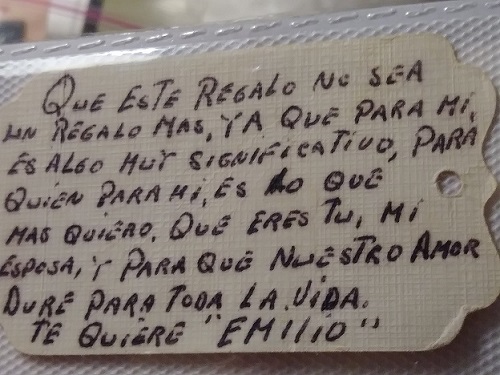 QUE ESTE REGALO NO SEA
UN REGALO MAS, YA QUE PARA MI,
ES ALGO MUY SIGNIFICATIVO, PARA
QUIEN PARA MI, ES LO QUE
MAS QUIERO. QUE ERES TU, MI
ESPOSA, Y PARA QUE NUESTRO AMOR
DURE PARA TODA LA VIDA.
TE QUIERE "EMILIO"